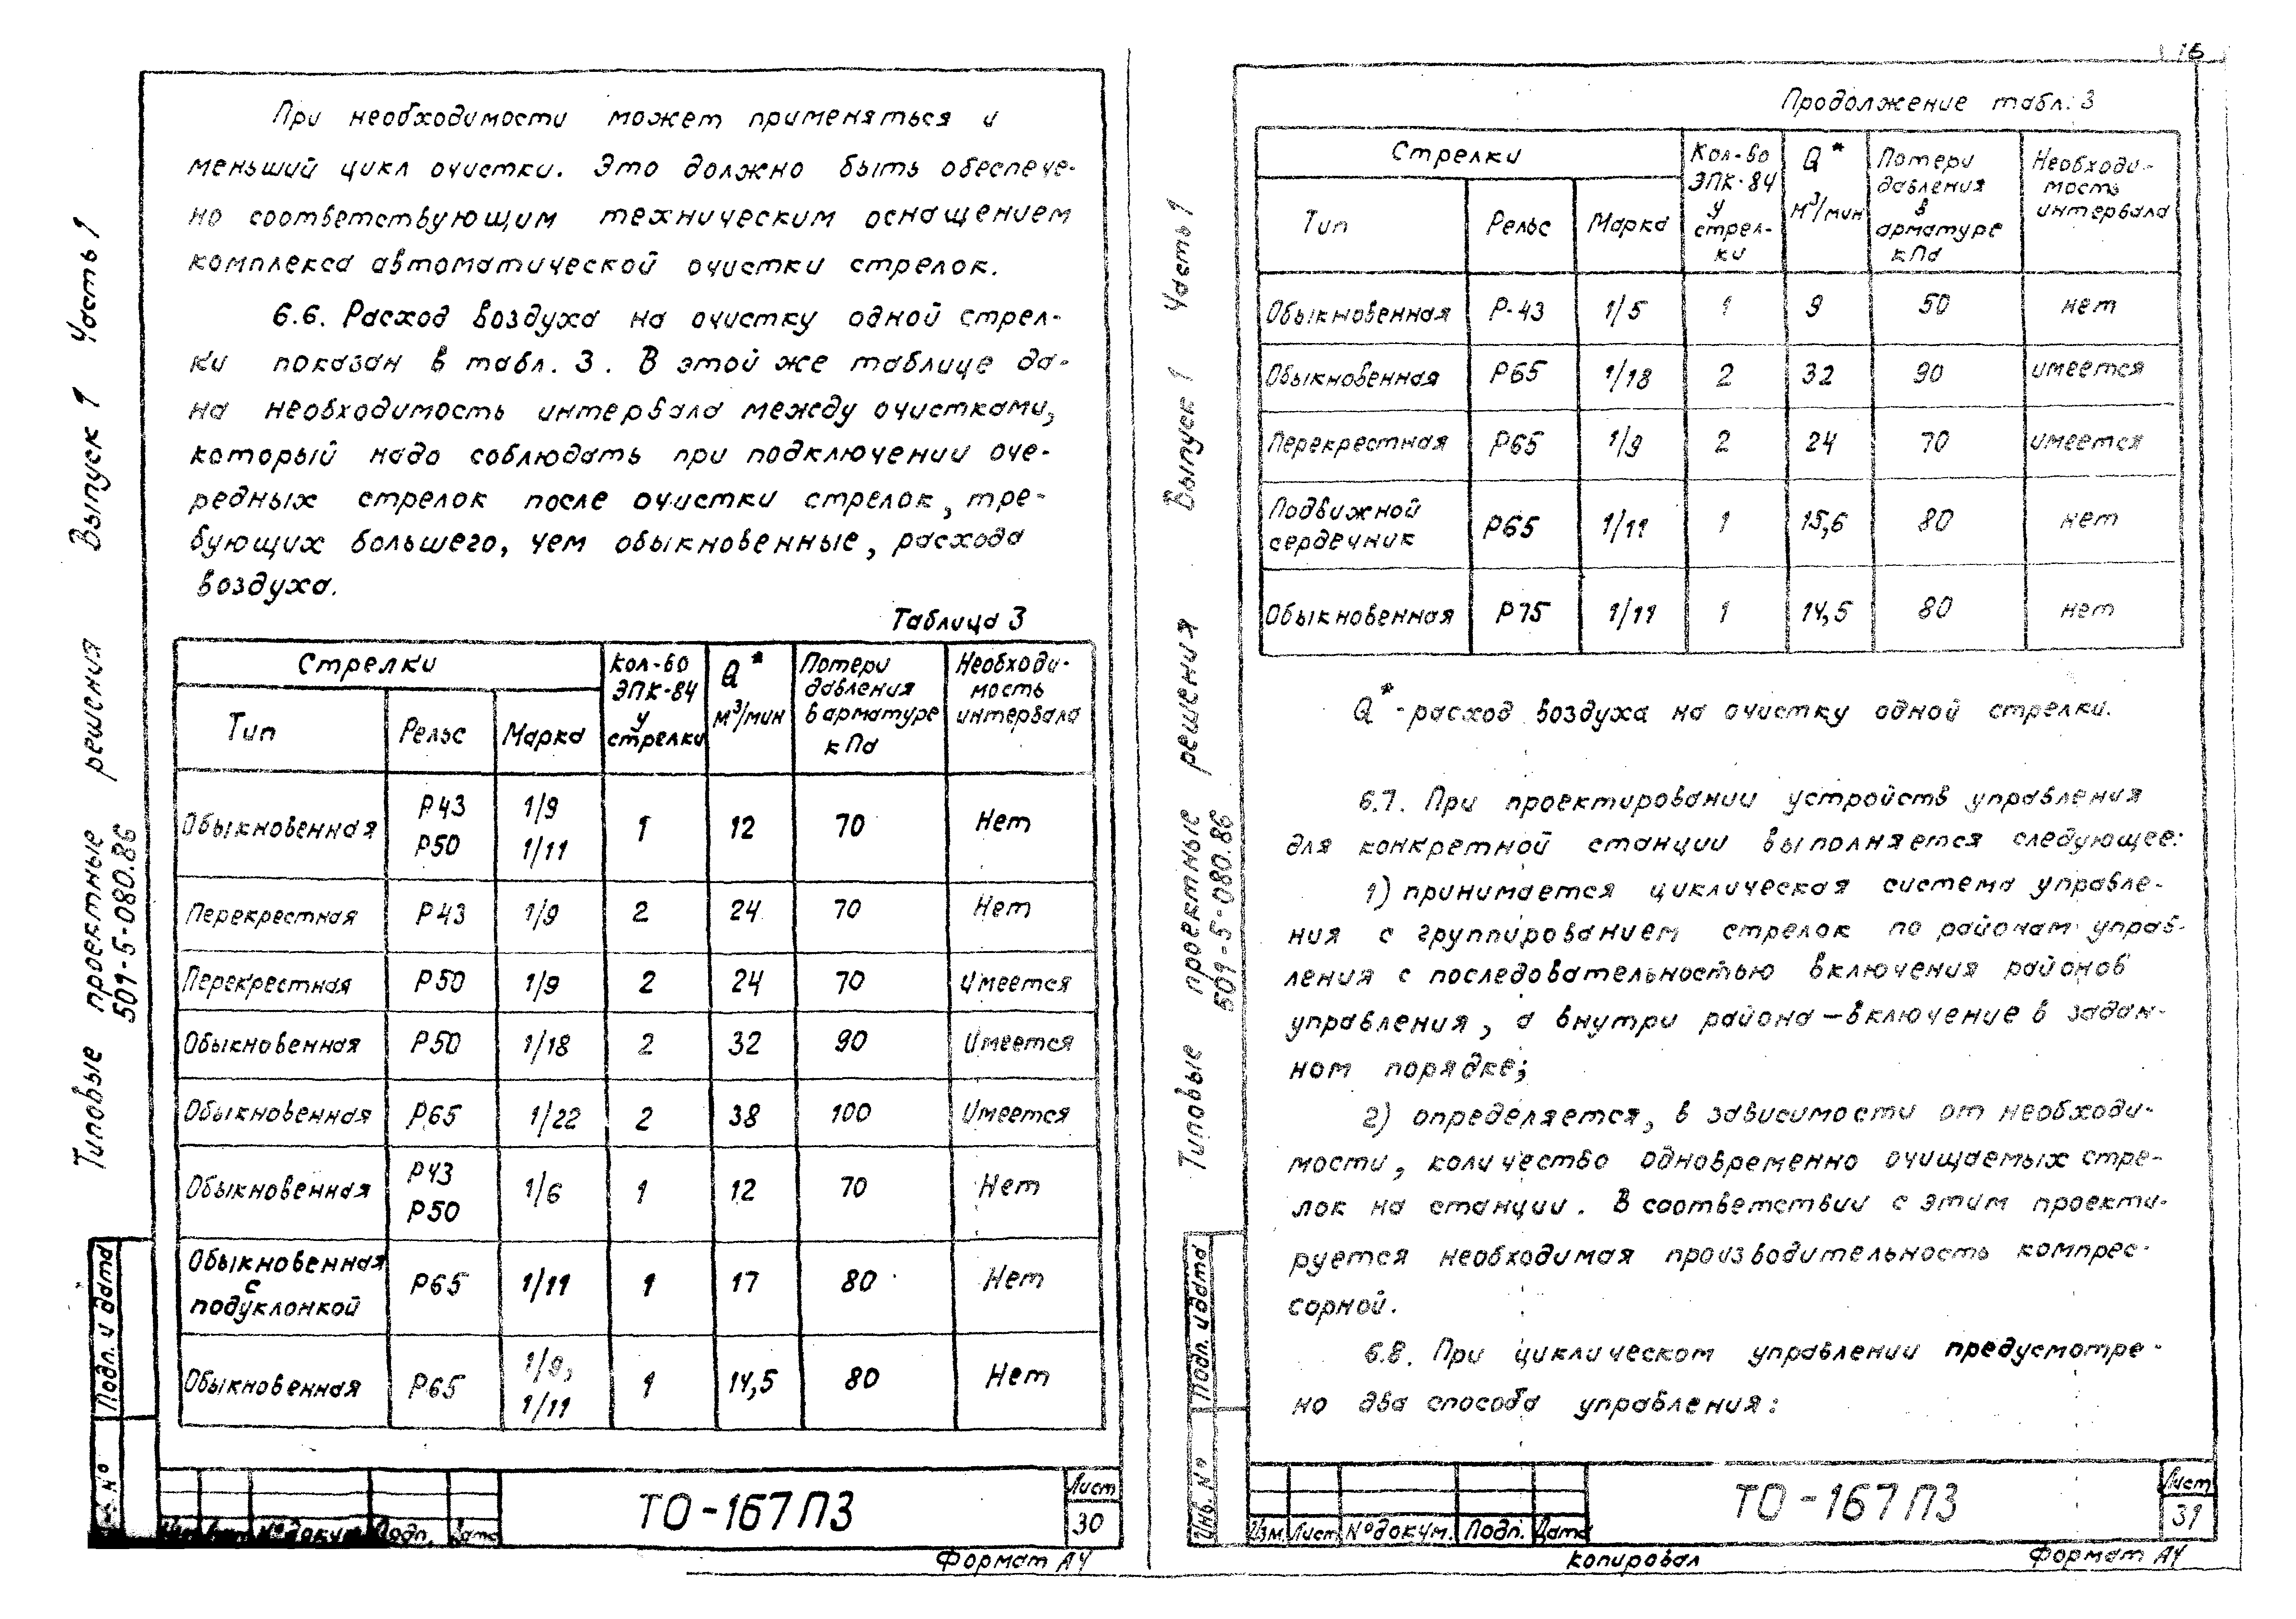 При необходимости может применяться и
меньший цикл очистки. Это должно быть обеспече-
но соответствующим техническим оснащением
комплекса автоматической очистки стрелок.
6.6. Расход воздуха на очистку одной стрел-
ки показан в табл. 3. В этой же таблице да-
на необходимость интервала между очистками,
который надо соблюдать при подключении оче-
редных стрелок после очистки стрелок, тре-
бующих большего, чем обыкновенные, расхода
воздуха.
Таблица 3
Стрелки | Кол-во ЭПК-84 у стрелки | Q* м³/мин | Потери давления в арматуре кПа | Необходи-мость интервала
Тип | Рельс | Марка
Обыкновенная | Р43 Р50 | 1/9 1/11 | 1 | 12 | 70 | Нет
Перекрестная | Р43 | 1/9 | 2 | 24 | 70 | Нет
Перекрестная | Р50 | 1/9 | 2 | 24 | 70 | Имеется
Обыкновенная | Р50 | 1/18 | 2 | 32 | 90 | Имеется
Обыкновенная | Р65 | 1/22 | 2 | 38 | 100 | Имеется
Обыкновенная | Р43 Р50 | 1/6 | 1 | 12 | 70 | Нет
Обыкновенная с подуклонкой | Р65 | 1/11 | 1 | 17 | 80 | Нет
Обыкновенная | Р65 | 1/9, 1/11 | 1 | 14,5 | 80 | Нет
Типовые проектные решения Выпуск 1 Часть 1
509-5-080.86
Подп. и дата
№ докум. Подп. Дата
ТО-167 ПЗ
Лист
30
Формат А4
16
Продолжение табл. 3
Стрелки | Кол-во ЭПК-84 у стрел-ки | Q* м³/мин | Потери давления в арматуре кПа | Необходи-мость интервала
Тип | Рельс | Марка
Обыкновенная | Р-43 | 1/5 | 1 | 9 | 50 | нет
Обыкновенная | Р65 | 1/18 | 2 | 32 | 90 | имеется
Перекрестная | Р65 | 1/9 | 2 | 24 | 70 | имеется
Подвижной сердечник | Р65 | 1/11 | 1 | 15,6 | 80 | нет
Обыкновенная | Р75 | 1/11 | 1 | 14,5 | 80 | нет
Q* - расход воздуха на очистку одной стрелки.
6.7. При проектировании устройств управления
для конкретной станции выполняется следующее:
1) принимается циклическая система управле-
ния с группированием стрелок по районам управ-
ления с последовательностью включения районов
управления, а внутри района – включение в задан-
ном порядке;
2) определяется, в зависимости от необходи-
мости, количество одновременно очищаемых стре-
лок на станции. В соответствии с этим проекти-
руется необходимая производительность компрес-
сорной.
6.8. При циклическом управлении предусмотре-
но два способа управления:
Типовые проектные решения Выпуск 1 Часть 1
509-5-080.86
Подп. и дата
Инв. №
Изм. Лист № докум. Подп. Дата
ТО-167 ПЗ
Лист
31
Копировал
Формат А4